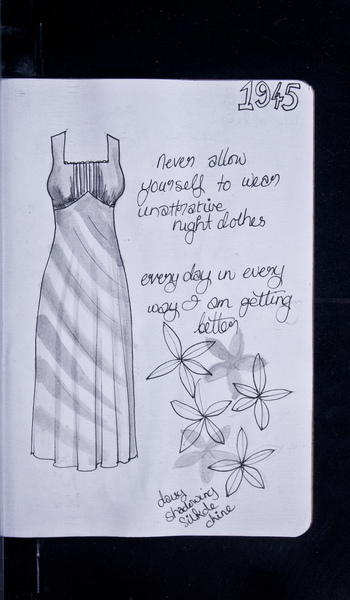 1945
never allow
yourself to wear
unattrative
night clothes
every day in every
way I am getting
better
shadowing
silk de
chine